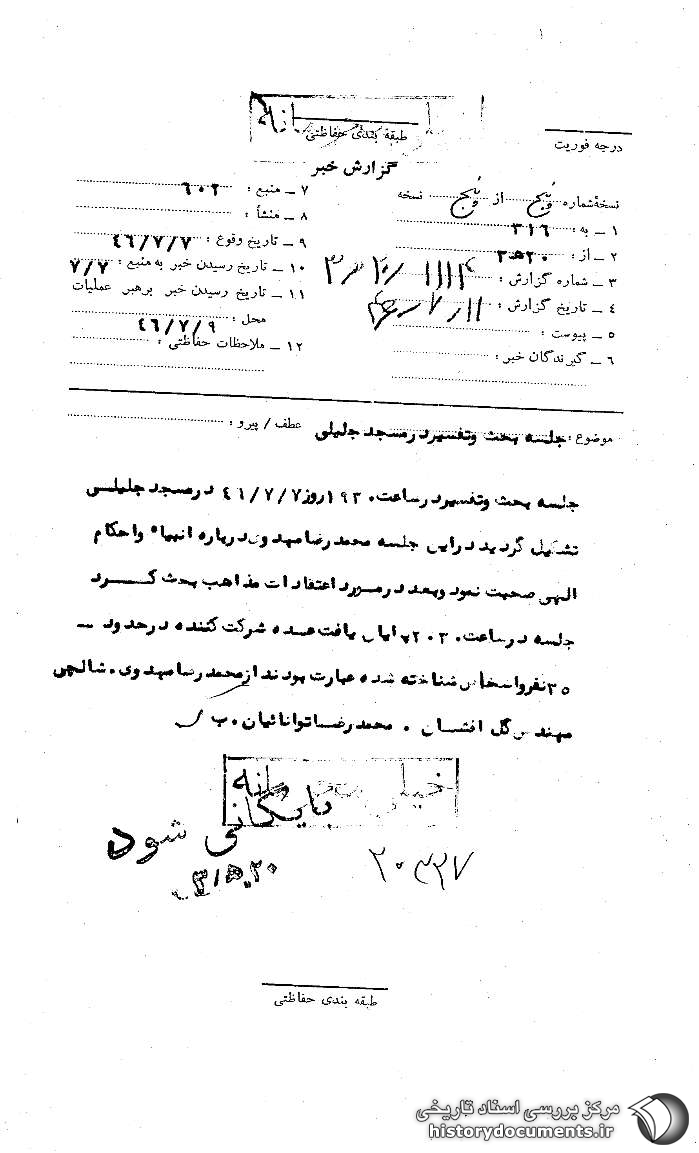 ۱
درجه فوریت
طبقه بندی حفاظتی
گزارش خبر
نسخهٔ شماره پنج از پنج نسخه
۱ ـ به : ۳۱۶
۲ ـ از : ۲۰ ه‍ ۳
۳ ـ شماره گزارش :
۴ ـ تاریخ گزارش : ۱۱ ر ۷ ر ۴۶
۵ ـ پیوست :
۶ ـ گیرندگان خبر :
۷ ـ منبع : ۶۰۲
۸ ـ منشأ :
۹ ـ تاریخ وقوع : ۴۶/۷/۷
۱۰ ـ تاریخ رسیدن خبر به منبع : ۷/۷
۱۱ ـ تاریخ رسیدن خبر برهبر عملیات
محل : ۴۶/۷/۹
۱۲ ـ ملاحظات حفاظتی :
موضوع : جلسه بحث وتفسیردرمسجد جلیلی
عطف / پیرو :
جلسه بحث وتفسیردرساعت ۱۹۳۰ روز ۴۶/۷/۷ درمسجد جلیلی
تشکیل گردید دراین جلسه محمدرضا مهدوی درباره انبیاء واحکام
الهی صحبت نمود وبعد درمورد اعتقادات مذاهب بحث کرد
جلسه درساعت ۲۰۳۰ پایان یافت عده شرکت کننده درحدود ــ
۳۵ نفرواشخاص شناخته شده عبارت بودند از محمدرضا مهدوی . شالچی
مهندس گل افشان . محمدرضا توانائیان . ب
خیلی محرمانه
بایگانی شود
۳/ه‍ ۲۰
۲۰۴۳۷
طبقه بندی حفاظتی
مرکز بررسی اسناد تاریخی
historydocuments.ir